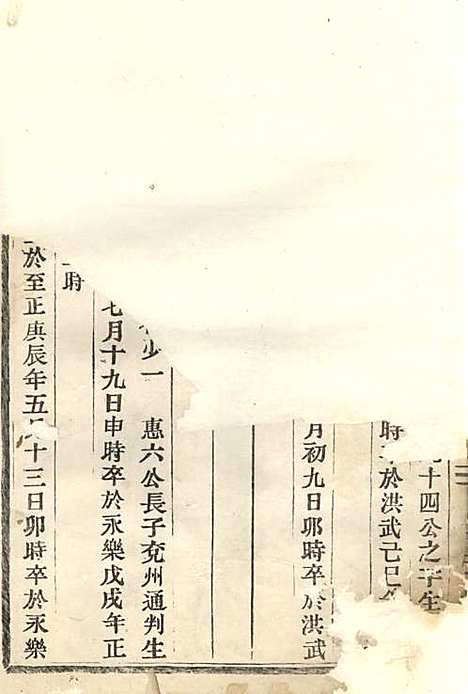 十四公之子生
時 於洪武己巳
月初九日卯時卒於洪武
少一 惠六公長子兗州通判生
七月十九日申時卒於永樂戊戌年正
時
於至正庚辰年五月十三日卯時卒於永樂